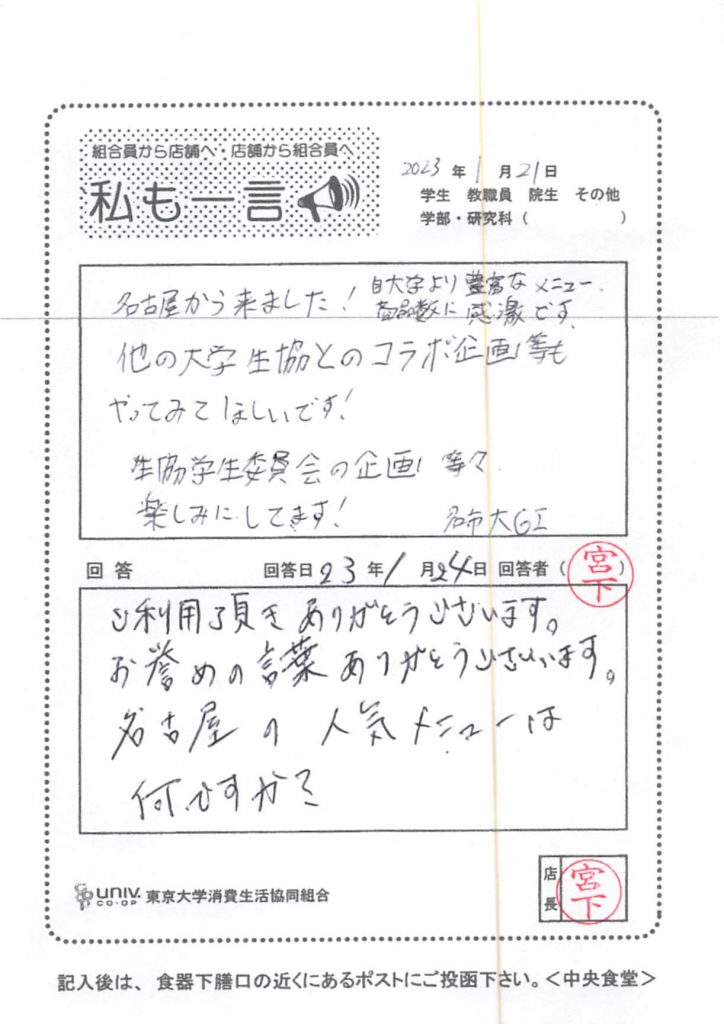 組合員から店舗へ・店舗から組合員へ
私も一言
2023年1月21日
学生 教職員 院生 その他
学部・研究科( )
名古屋から来ました!
自大学より豊富なメニュー、
商品数に感激です。
他の大学生協とのコラボ企画等も
やってみてほしいです!
生協学生委員会の企画等々
楽しみにしてます!
名市大GI
回答 回答日23年1月24日 回答者(宮下)
ご利用頂きありがとうございます。
お誉めの言葉ありがとうございます。
名古屋の人気メニューは
何ですか?
店長 宮下
UNIV. CO-OP 東京大学消費生活協同組合
記入後は、食器下膳口の近くにあるポストにご投函下さい。<中央食堂>